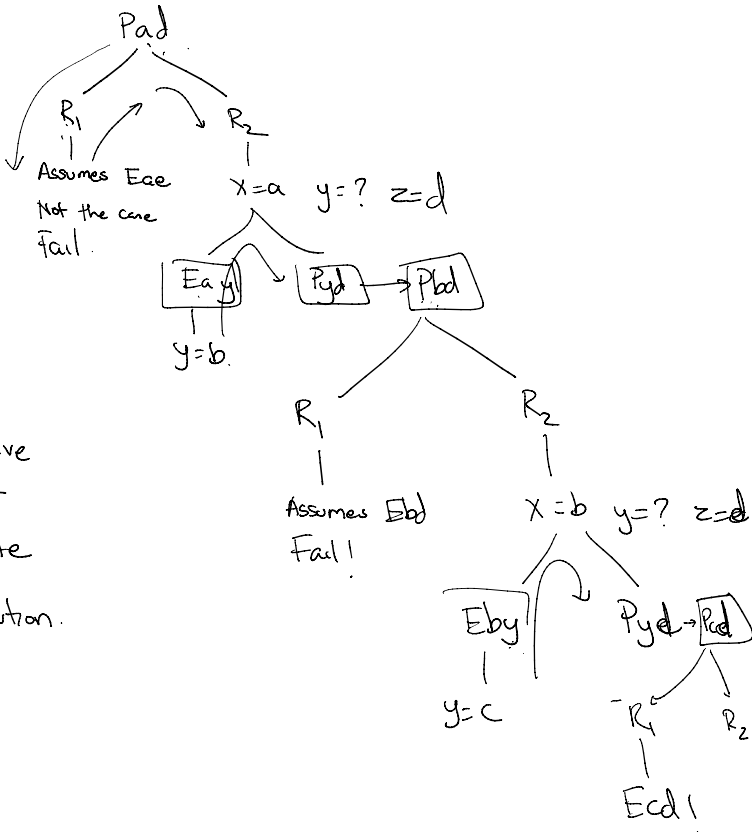 Pad
R1
R2
Assumes Eae
Not the case
Fail.
x=a y=? z=d
Eay
Pyd
Pbd
y=b.
R1
R2
ve
te
ution.
Assumes Ebd
Fail!
x=b y=? z=d
Eby
Pyd
Pcd
y=c
R1
R2
Ecd!